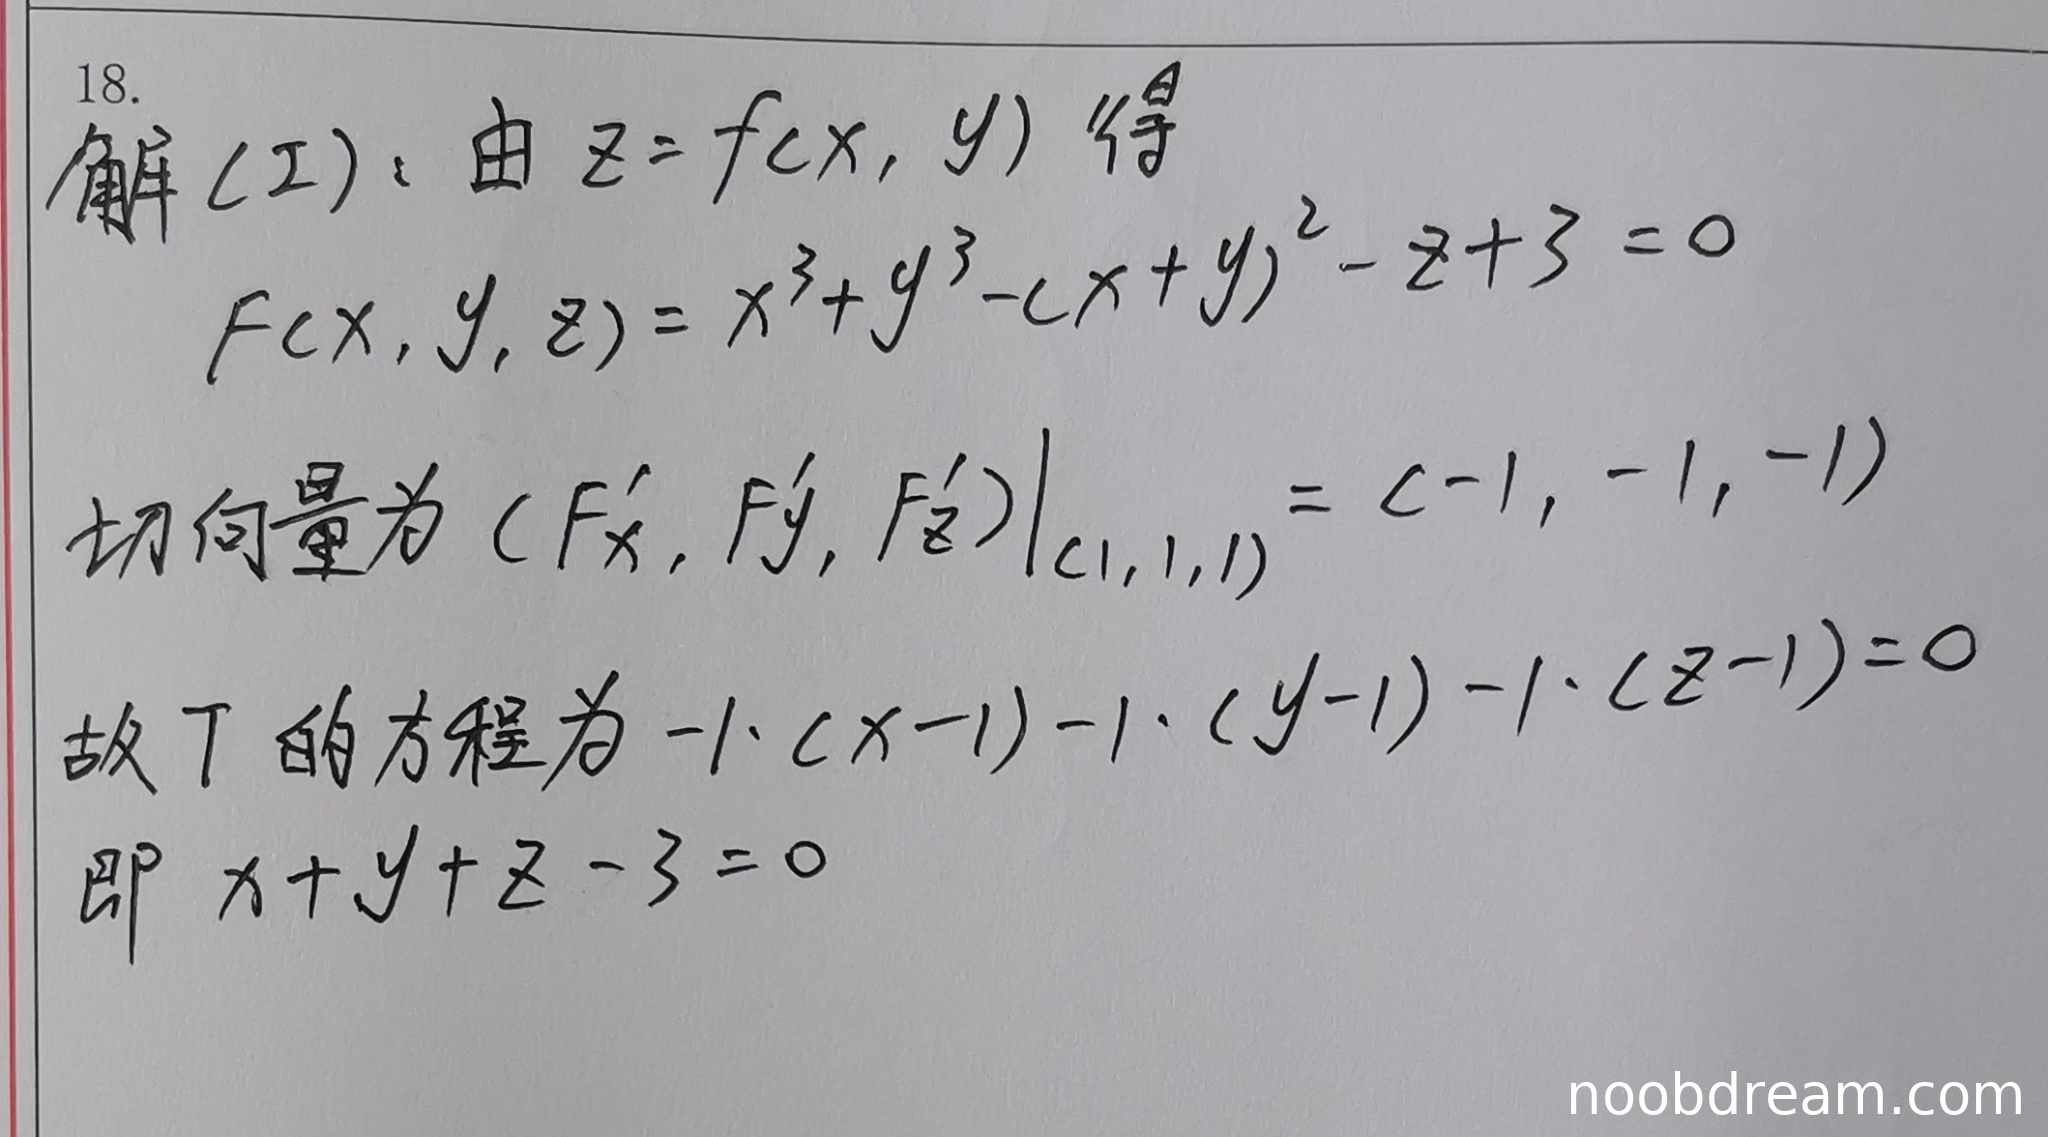 18.
解(I): 由 z = f(x, y) 得
F(x, y, z) = x³ + y³ - (x + y)² - z + 3 = 0
切向量为 (F'x, F'y, F'z)|(1, 1, 1) = (-1, -1, -1)
故 T 的方程为 -1·(x-1) -1·(y-1) -1·(z-1) = 0
即 x + y + z - 3 = 0
noobdream.com